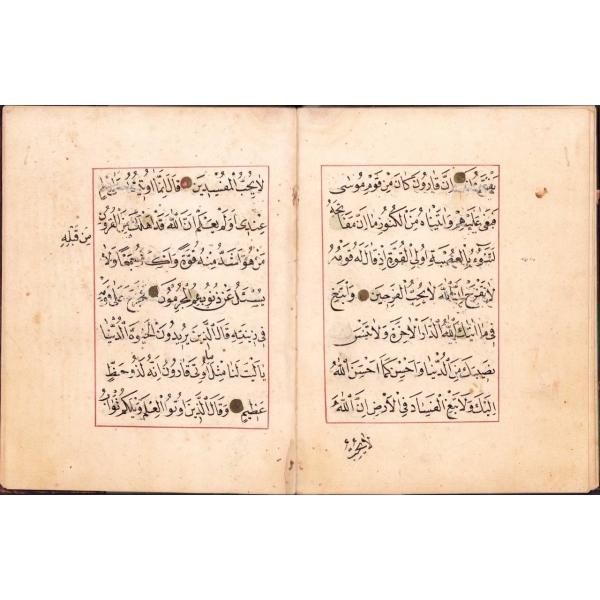 يفترون ان قارون كان من قوم موسى
فبغى عليهم واتيناه من الكنوز ما ان مفاتحه
لتنوء بالعصبة اولى القوة اذ قال له قومه
لا تفرح ان الله لا يحب الفرحين وابتغ
فى ما اتيك الله الدار الاخرة ولا تنس
نصيبك من الدنيا واحسن كما احسن الله
اليك ولا تبغ الفساد فى الارض ان الله
لا يحب
لا يحب المفسدين قال انما اوتيته على علم
عندى اولم يعلم ان الله قد اهلك من القرون
من قبله
من هو اشد منه قوة واكثر جمعا ولا
يسئل عن ذنوبهم المجرمون فخرج على قومه
فى زينته قال الذين يريدون الحيوة الدنيا
يا ليت لنا مثل ما اوتى قارون انه لذو حظ
عظيم وقال الذين اوتوا العلم ويلكم ثواب